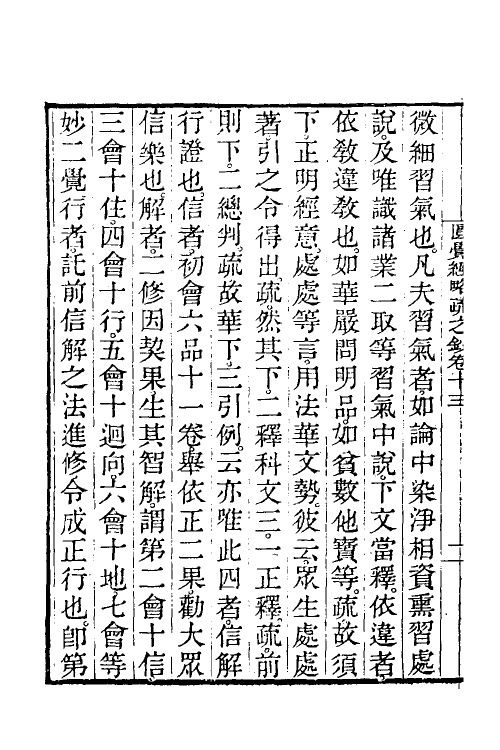 圓覺經略疏之鈔卷十三
微細習氣也。凡夫習氣者。如論中染淨相資熏習處
說。及唯識諸業二取等習氣中說。下文當釋。依違者。
依敎違敎也。如華嚴問明品。如貧數他寶等。疏故須
下。正明經意。處處等言。用法華文勢。彼云。眾生處處
著。引之令得出。疏。然其下。二釋科文三。一正釋。疏。前
則下。二總判。疏故華下。三引例。云亦唯此四者。信解
行證也。信者。初會六品十一卷。舉依正二果。勸大眾
信樂也。解者。二修因契果生其智解。謂第二會十信。
三會十住。四會十行。五會十迴向。六會十地。七會等
妙二覺。行者。託前信解之法進修。令成正行也。卽第